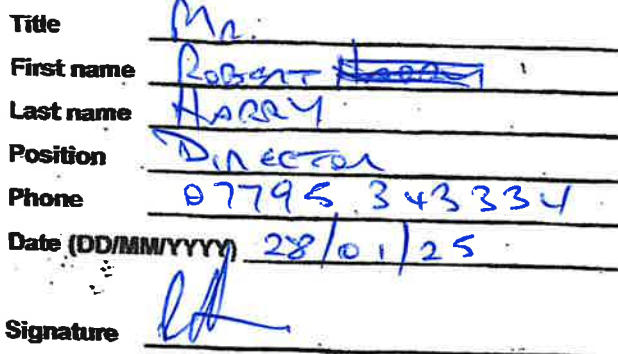 Title Mr.
First name ROBERT
Last name HARRY
Position DIRECTOR
Phone 07795 343334
Date (DD/MM/YYYY) 28/01/25
Signature